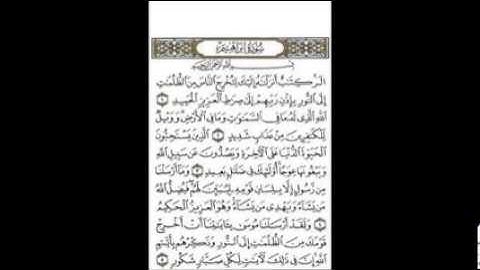 سُورَةُ إِبْرَاهِيمَ
بِسْمِ اللَّهِ الرَّحْمَٰنِ الرَّحِيمِ
الٓر كِتَٰبٌ أَنزَلْنَٰهُ إِلَيْكَ لِتُخْرِجَ النَّاسَ مِنَ الظُّلُمَٰتِ
إِلَى النُّورِ بِإِذْنِ رَبِّهِمْ إِلَىٰ صِرَٰطِ الْعَزِيزِ الْحَمِيدِ ١
اللَّهِ الَّذِى لَهُ مَا فِى السَّمَٰوَٰتِ وَمَا فِى الْأَرْضِ وَوَيْلٌ
لِّلْكَٰفِرِينَ مِنْ عَذَابٍ شَدِيدٍ ٢ الَّذِينَ يَسْتَحِبُّونَ
الْحَيَوٰةَ الدُّنْيَا عَلَى الْآخِرَةِ وَيَصُدُّونَ عَن سَبِيلِ اللَّهِ
وَيَبْغُونَهَا عِوَجًا أُولَٰئِكَ فِى ضَلَٰلٍ بَعِيدٍ ٣ وَمَا أَرْسَلْنَا
مِن رَّسُولٍ إِلَّا بِلِسَانِ قَوْمِهِ لِيُبَيِّنَ لَهُمْ فَيُضِلُّ اللَّهُ
مَن يَشَاءُ وَيَهْدِى مَن يَشَاءُ وَهُوَ الْعَزِيزُ الْحَكِيمُ
٤ وَلَقَدْ أَرْسَلْنَا مُوسَىٰ بِـَٔايَٰتِنَا أَنْ أَخْرِجْ
قَوْمَكَ مِنَ الظُّلُمَٰتِ إِلَى النُّورِ وَذَكِّرْهُم بِأَيَّىٰمِ
اللَّهِ إِنَّ فِى ذَٰلِكَ لَآيَٰتٍ لِّكُلِّ صَبَّارٍ شَكُورٍ ٥